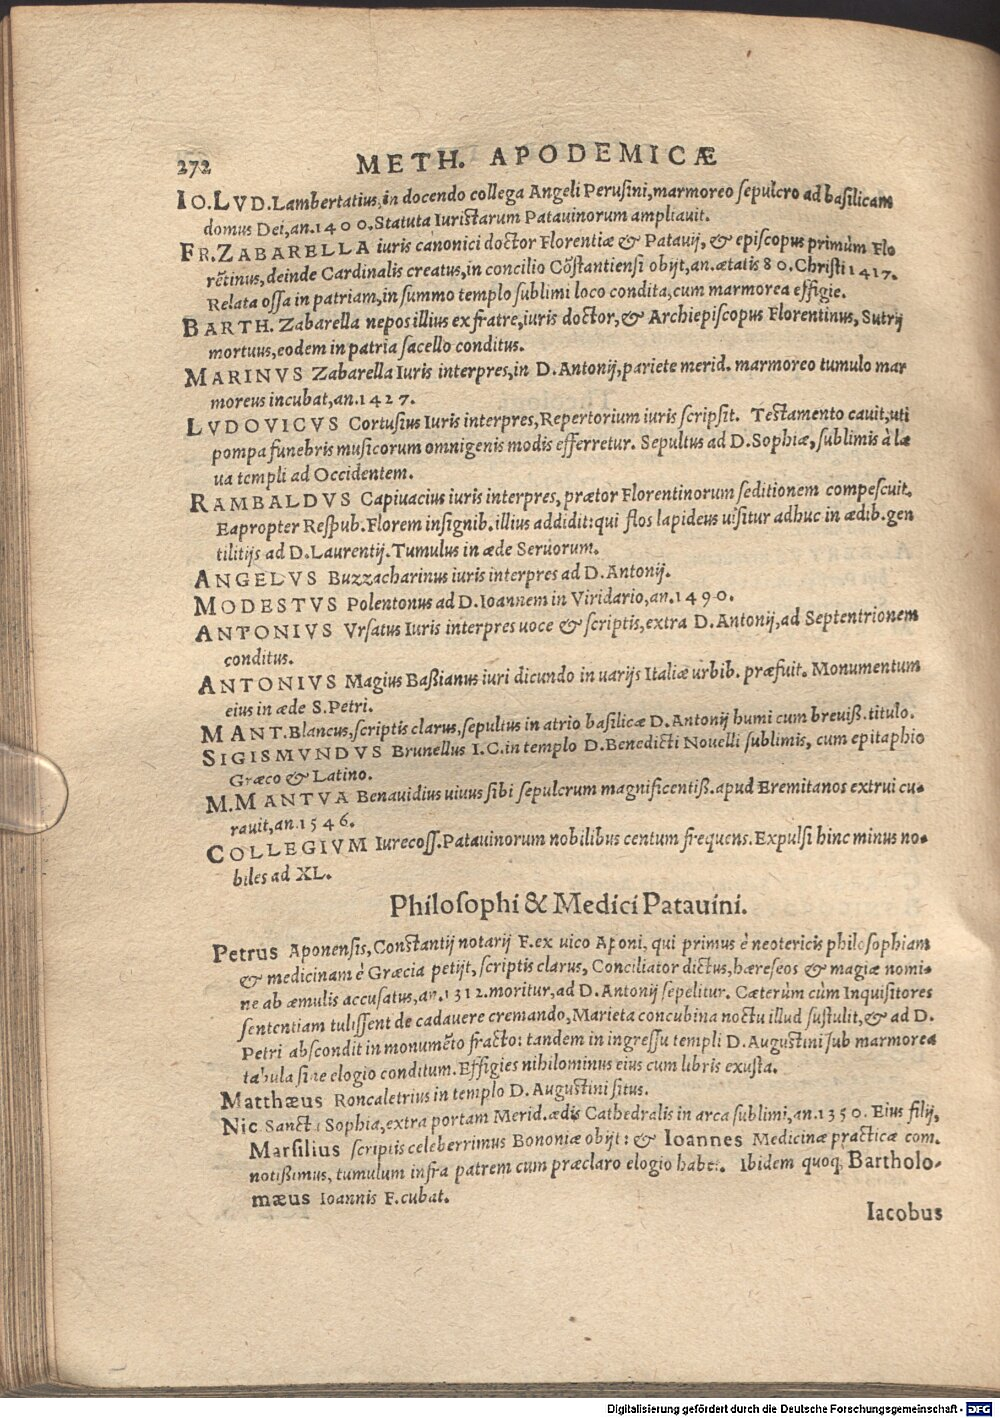 272 METH. APODEMICÆ
IO. LVD. Lambertatius, in docendo collega Angeli Perusini, marmoreo sepulcro ad basilicam
domus Dei, an. 1400. Statuta Iuristarum Patauinorum ampliauit.
FR. ZABARELLA iuris canonici doctor Florentiæ & Patauij, & episcopus primùm Flo
rẽtinus, deinde Cardinalis creatus, in concilio Cõstantiensi obijt, an. ætatis 80. Christi 1417.
Relata ossa in patriam, in summo templo sublimi loco condita, cum marmorea effigie.
BARTH. Zabarella nepos illius ex fratre, iuris doctor, & Archiepiscopus Florentinus, Sutrij
mortuus, eodem in patria sacello conditus.
MARINVS Zabarella Iuris interpres, in D. Antonij, pariete merid. marmoreo tumulo mar
moreus incubat, an. 1427.
LVDOVICVS Cortusius Iuris interpres, Repertorium iuris scripsit. Testamento cauit, uti
pompa funebris musicorum omnigenis modis efferretur. Sepultus ad D. Sophiæ, sublimis à læ
ua templi ad Occidentem.
RAMBALDVS Capiuacius iuris interpres, prætor Florentinorum seditionem compescuit.
Eapropter Respub. Florem insignib. illius addidit: qui flos lapideus uisitur adhuc in ædib. gen
tilitijs ad D. Laurentij. Tumulus in æde Seruorum.
ANGELVS Buzzacharinus iuris interpres ad D. Antonij.
MODESTVS Polentonus ad D. Ioannem in Viridario, an. 1490.
ANTONIVS Vrsatus Iuris interpres uoce & scriptis, extra D. Antonij, ad Septentrionem
conditus.
ANTONIVS Magius Baßianus iuri dicundo in uarijs Italiæ urbib. præfuit. Monumentum
eius in æde S. Petri.
MANT. Blancus, scriptis clarus, sepultus in atrio basilicæ D. Antonij humi cum breuiß. titulo.
SIGISMVNDVS Brunellus I. C. in templo D. Benedicti Nouelli sublimis, cum epitaphio
Græco & Latino.
M. MANTVA Benauidius uiuus sibi sepulcrum magnificentiß. apud Eremitanos extrui cu-
rauit, an. 1546.
COLLEGIVM Iurecoss. Patauinorum nobilibus centum frequens. Expulsi hinc minus no-
biles ad XL.
Philosophi & Medici Patauini.
Petrus Aponensis, Constantij notarij F. ex uico Aponi, qui primus è neotericis philosophiam
& medicinam è Græcia petijt, scriptis clarus, Conciliator dictus, hæreseos & magiæ nomi-
ne ab æmulis accusatus, an. 1312. moritur, ad D. Antonij sepelitur. Cæterùm cùm Inquisitores
sententiam tulissent de cadauere cremando, Marieta concubina noctu illud sustulit, & ad D.
Petri abscondit in monumẽto fracto: tandem in ingressu templi D. Augustini sub marmorea
tabula sine elogio conditum. Effigies nihilominus eius cum libris exusta.
Matthæus Roncaletrius in templo D. Augustini situs.
Nic Sanct. Sophia, extra portam Merid. ædis Cathedralis in arca sublimi, an. 1350. Eius filij,
Marsilius scriptis celeberrimus Bononiæ obijt: & Ioannes Medicinæ practicæ com.
notißimus, tumulum infra patrem cum præclaro elogio habet. Ibidem quoq; Bartholo-
mæus Ioannis F. cubat.
Iacobus
Digitalisierung gefördert durch die Deutsche Forschungsgemeinschaft - DFG